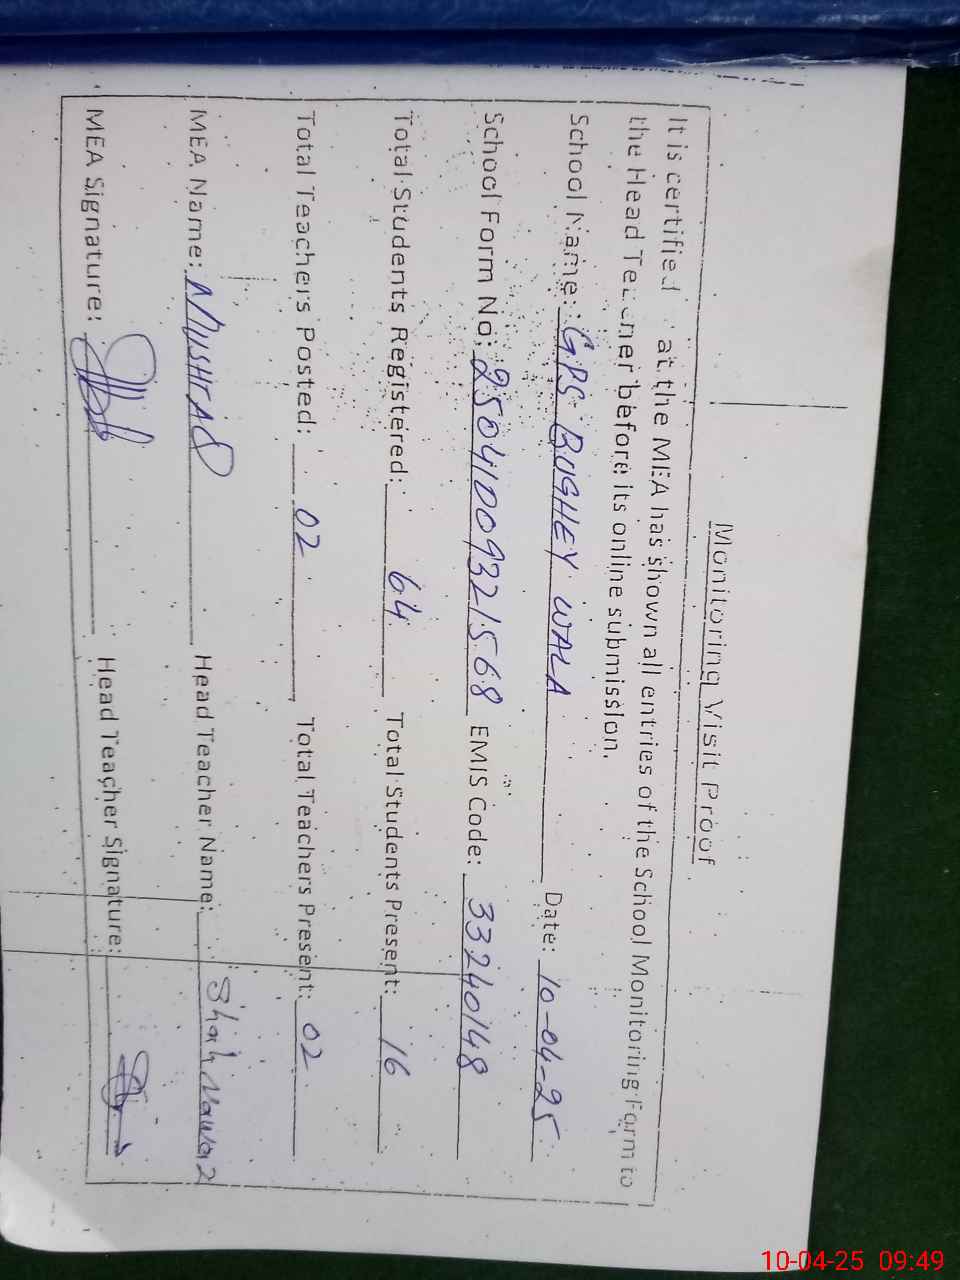 Monitoring Visit Proof
It is certified at the MEA has shown all entries of the School Monitoring Form to
the Head Teacher before its online submission.
School Name: GPS BUGHEY WALA Date: 10-04-25
School Form No: 25041009321568 EMIS Code: 33240148
Total Students Registered: 64 Total Students Present: 16
Total Teachers Posted: 02 Total Teachers Present: 02
MEA Name: MUSHTAQ Head Teacher Name: Shah Nawaz
MEA Signature: Head Teacher Signature:
10-04-25 09:49